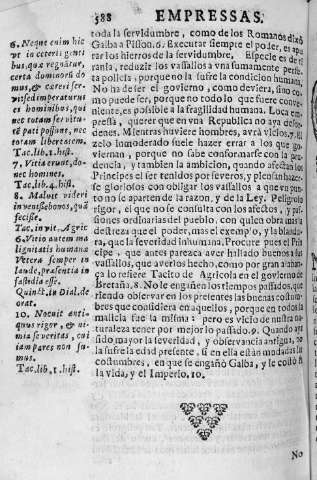 588 EMPRESSAS.
toda la servidumbre, como de los Romanos dixo
Galba a Pison. 6. Executar siempre el poder, es apu
rar los hierros de la servidumbre. Especie es de ti
rania, reduzir los vassallos a vna sumamente perfe
ta policia, porque no la sufre la condicion humana.
No ha de ser el govierno, como deviera, sino co
mo puede ser, porque no todo lo que fuere conve
niente, es possible a la fragilidad humana. Loca em
pressa, querer que en vna Republica no aya desor
denes. Mientras huviere hombres, avrà vicios. 7. El
zelo inmoderado suele hazer errar a los que go
viernan, porque no sabe conformarse con la pru
dencia, y tambien la ambicion, quando afectan los
Principes el ser tenidos por severos, y piensan haze
se gloriosos con obligar los vassallos a que vn pun
to no se aparten de la razon, y de la Ley. Peligroso
rigor, el que no se consulta con los afectos, y pas
siones ordinarias del pueblo, con quien obra mas la
destreza que el poder, mas el exemplo, y la blandu
ra, que la severidad inhumana. Procure pues el Prin
cipe, que antes parezca aver hallado buenos sus
vassallos, que averlos hecho, como por gran alaban
ça lo refiere Tacito de Agricola en el govierno de
Bretaña. 8. No le engañen los tiempos passados, que
riendo observar en los presentes las buenas costum
bres que considera en aquellos, porque en todos la
malicia fue la misma: pero es vicio de nuestra
naturaleza tener por mejor lo passado. 9. Quando aya
sido mayor la severidad, y observancia antigua, no
la sufre la edad presente, si en ella estàn mudadas las
costumbres, en que se engañò Galba, y le costò
la vida, y el Imperio. 10.
No
6. Neque enim hic
vt in ceteris genti
bus, quæ regnātur,
certa dominorū do
mus, & cæteri ser-
vi: sed imperaturus
es hominibus, qui
nec totam servitu-
tē pati possunt, nec
totam libertatem.
Tac. lib. 1. hist.
7. Vitia erunt, do-
nec homines.
Tac. lib. 4. hist.
8. Maluit videri
invenisse bonos, quā
fecisse.
Tac. in vit. Agric
9. Vitio autem ma
lignitatis humanæ
Vetera semper in
laude, præsentia in
fastidio esse.
Quintt. in Dial. de
orat.
10. Nocuit anti-
quus rigor, & ni-
mia severitas, cui
iam pares non su-
mus.
Tac. lib. 1. hist.